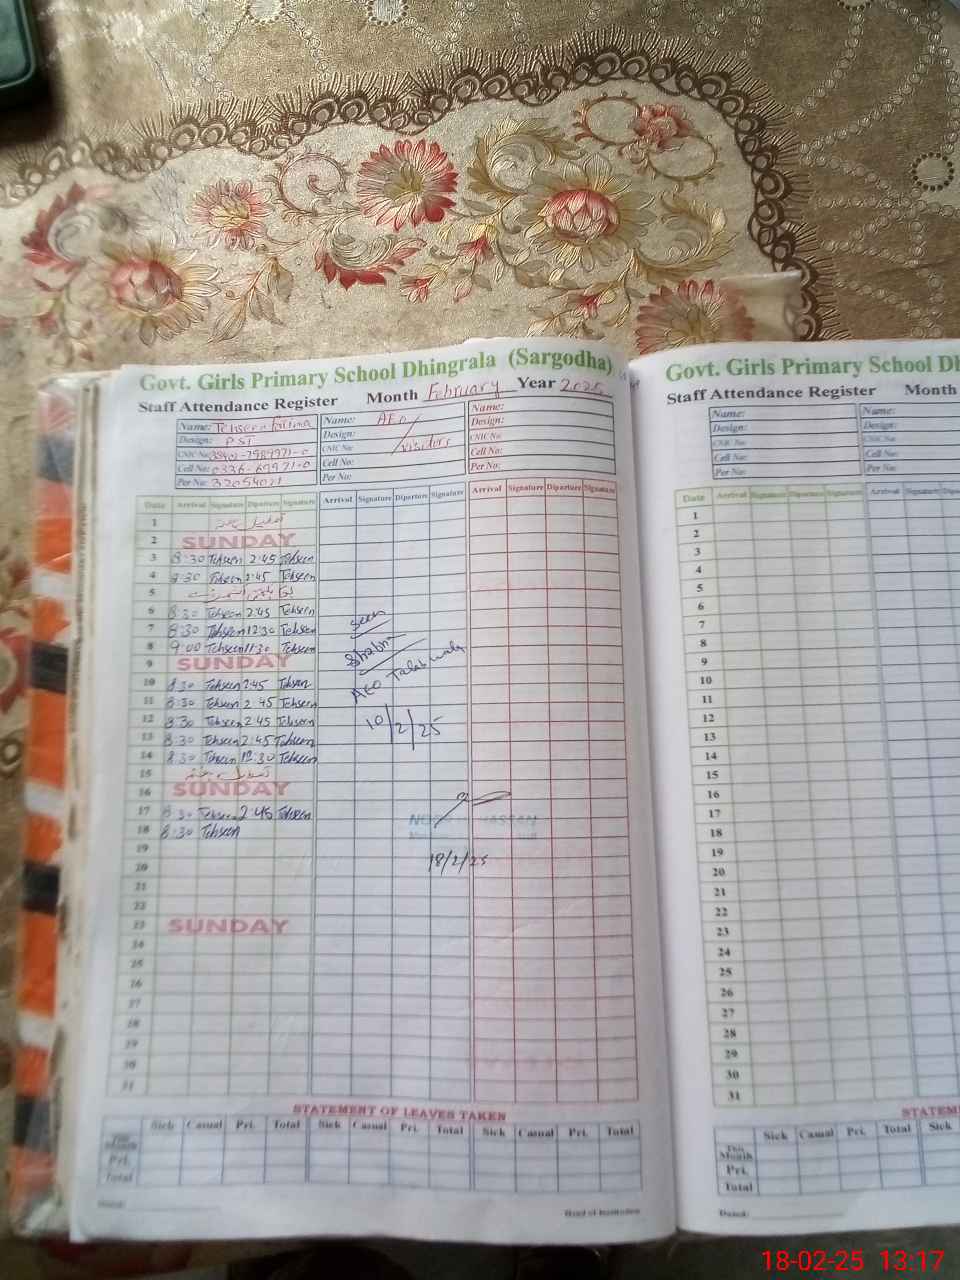 Govt. Girls Primary School Dhingrala (Sargodha)
Staff Attendance Register Month February Year 2025
Name: Tehseen Fatima Name: AEO / Visitors Name:
Design: PST Design: Design:
CNIC No: CNIC No: CNIC No:
Cell No: Cell No: Cell No:
Per No: Per No: Per No:
Date Arrival Signature Diparture Signature Arrival Signature Diparture Signature Arrival Signature Diparture Signature
1
2 SUNDAY
3 8:30 Tehseen 2:45 Tehseen
4 8:30 Tehseen 2:45 Tehseen
5
6 8:30 Tehseen 2:45 Tehseen
7 8:30 Tehseen 12:30 Tehseen Seen
8 9:00 Tehseen 11:30 Tehseen
9 SUNDAY
10 8:30 Tehseen 2:45 Tehseen AEO
11 8:30 Tehseen 2:45 Tehseen
12 8:30 Tehseen 2:45 Tehseen 10/2/25
13 8:30 Tehseen 2:45 Tehseen
14 8:30 Tehseen 12:30 Tehseen
15
16 SUNDAY
17 8:30 Tehseen 2:45 Tehseen
18 8:30 Tehseen
19 18/2/25
20
21
22
23 SUNDAY
24
25
26
27
28
29
30
31
STATEMENT OF LEAVES TAKEN
Sick Casual Pri. Total Sick Casual Pri. Total Sick Casual Pri. Total
This Month
Pri.
Total
Dated: Head of Institution
Govt. Girls Primary School Dh
Staff Attendance Register Month
Name: Name:
Design: Design:
CNIC No: CNIC No:
Cell No: Cell No:
Per No: Per No:
Date Arrival Signature Diparture Signature Arrival Signature
1
2
3
4
5
6
7
8
9
10
11
12
13
14
15
16
17
18
19
20
21
22
23
24
25
26
27
28
29
30
31
STATEM
Sick Casual Pri. Total Sick
This Month
Pri.
Total
Dated:
18-02-25 13:17